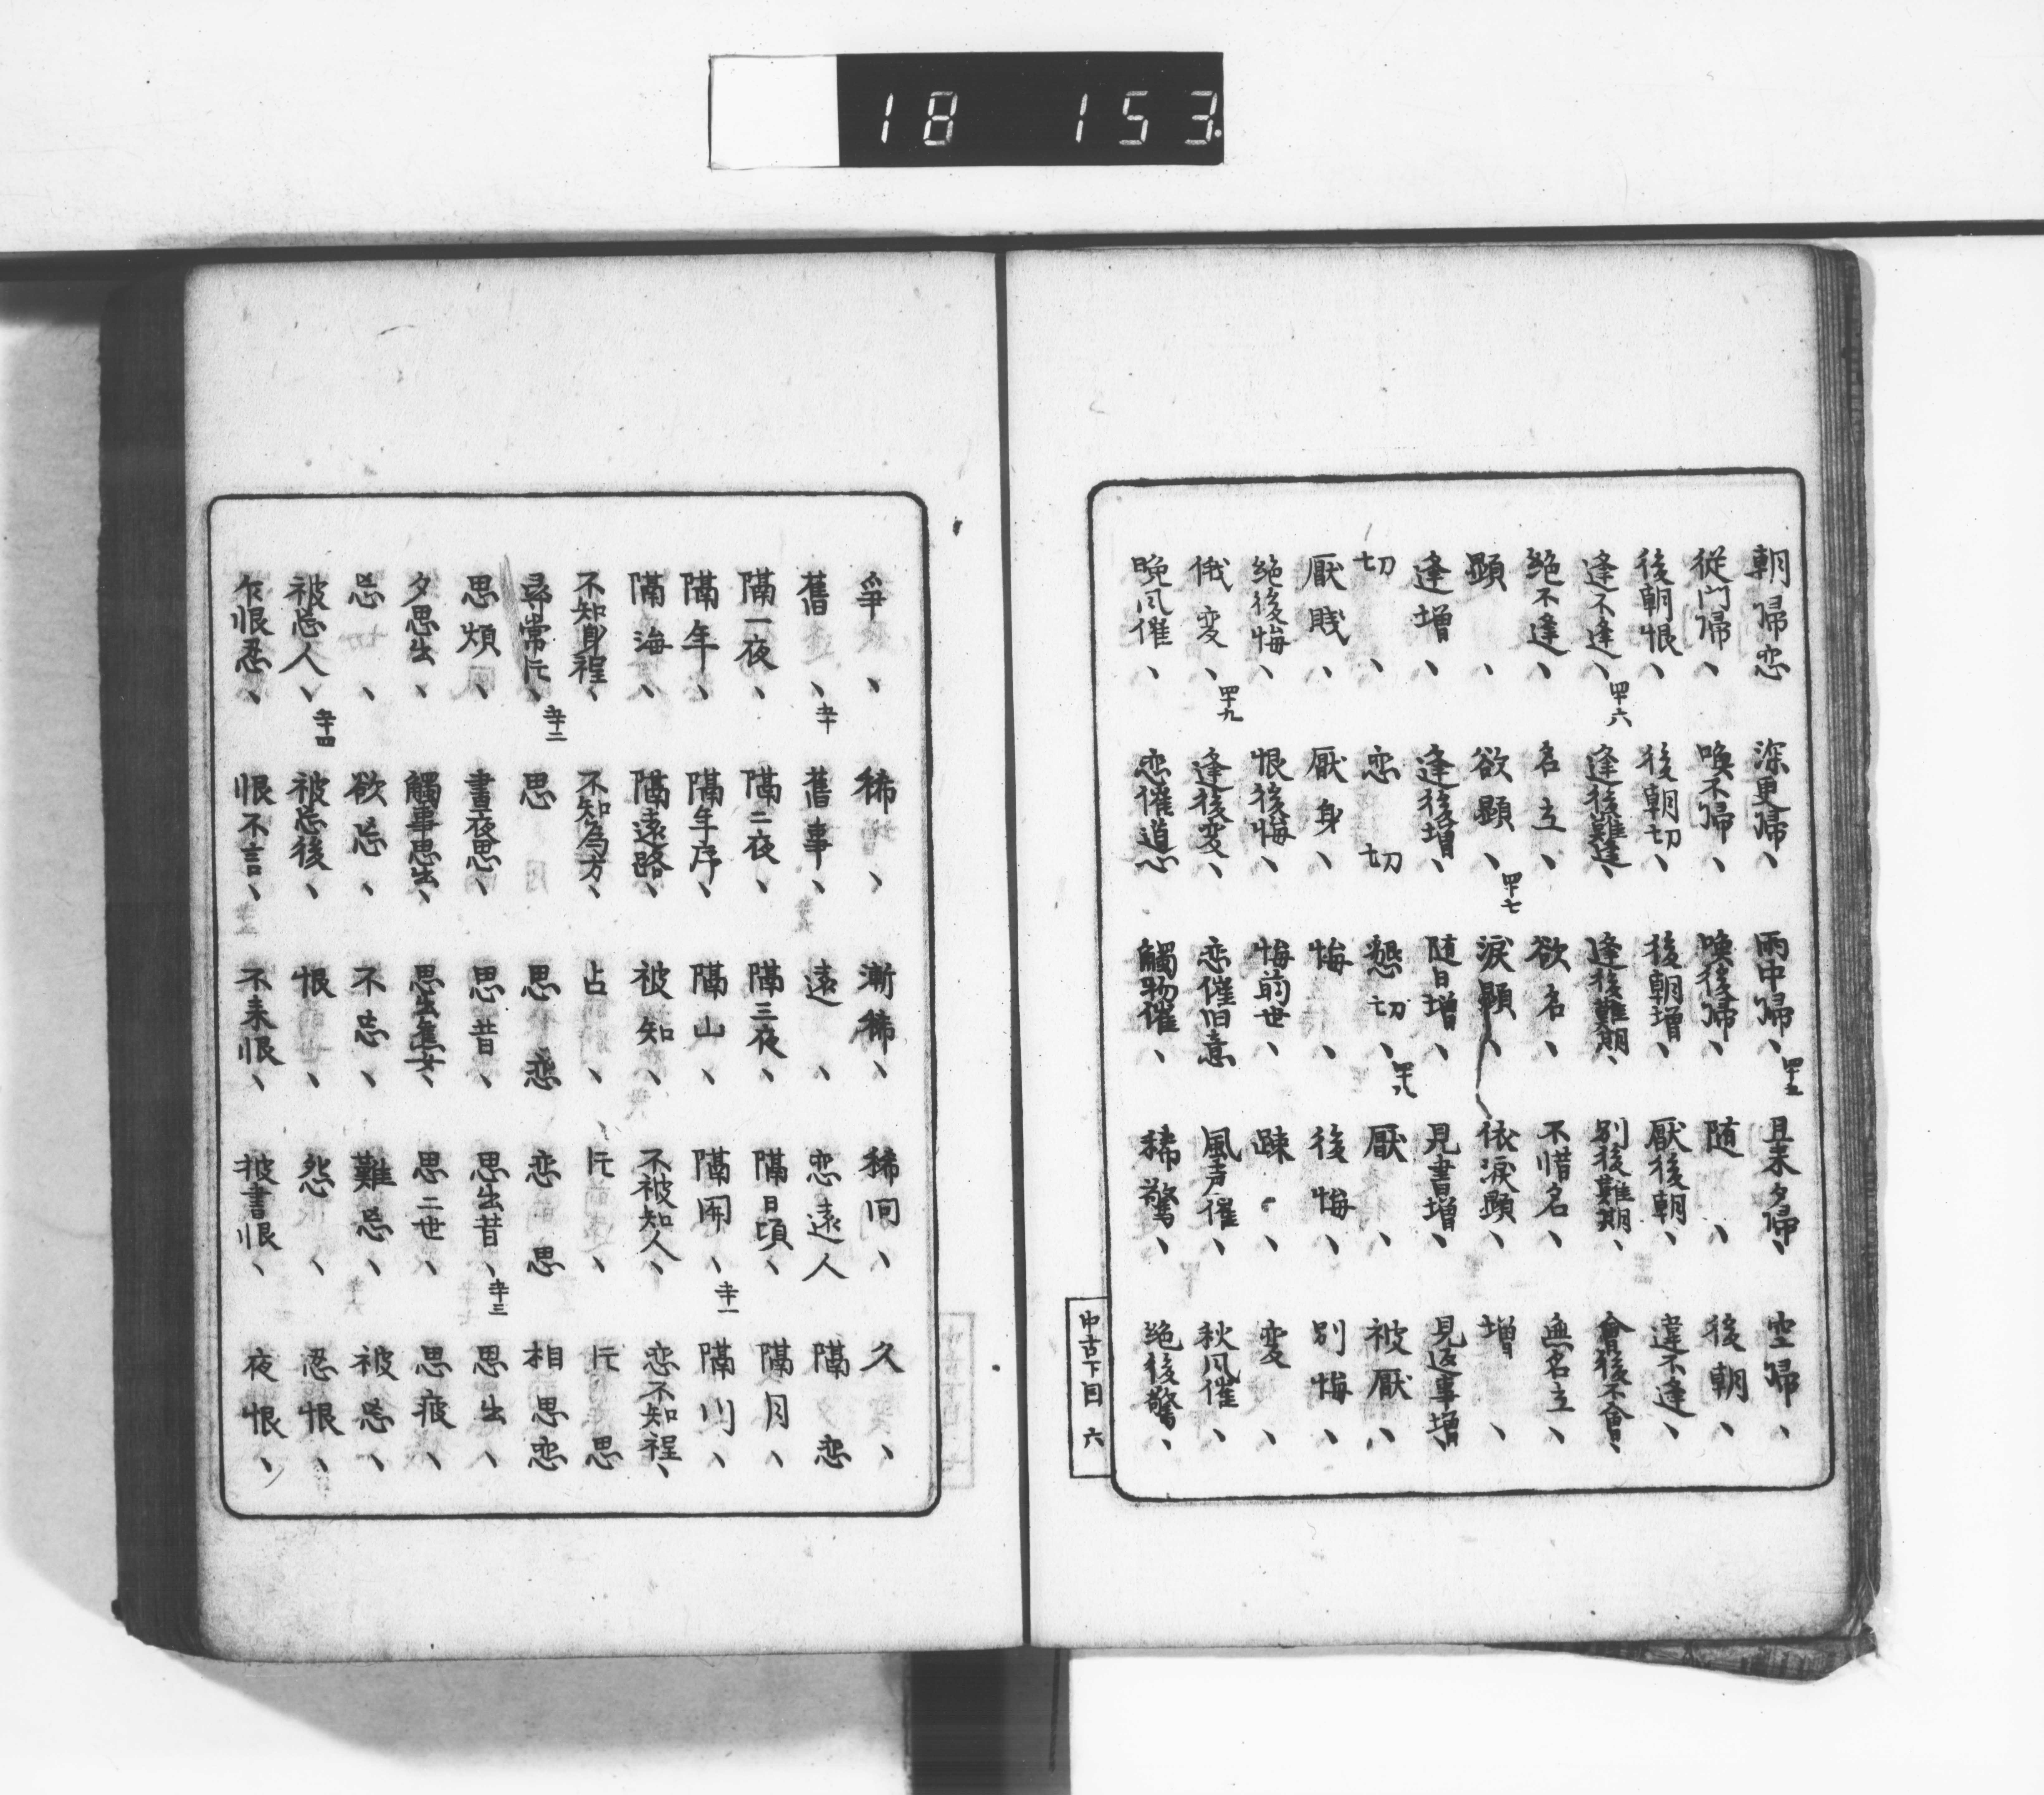 18 153
朝帰恋 深更帰、 雨中帰、四十五 且来夕帰、 空帰、
従門帰、 喚不帰、 喚後帰、 随、 後朝、
後朝恨、 後朝切、 後朝増、 厭後朝、 違不逢、
逢不逢、四十六 逢後難逢、 逢後難期、 別後難期、 會後不會、
絶不逢、 名立、 欲名、 不惜名、 無名立、
顕、 欲顕、四十七 涙顕、 依涙顕、 増、
逢増、 逢後増、 随日増、 見書増、 見返事増、
切、 恋切 懇切、四十八 厭、 被厭、
厭賎、 厭身、 悔、 後悔、 別悔、
絶後悔、 恨後悔、 悔前世、 疎、 変、
俄変、四十九 逢後変、 恋催旧意 風声催、 秋风催、
晩风催、 恋催道心 觸物催、 稀驚、 絶後驚、
中古下目 六
争、 稀、 漸稀、 稀問、 久、
舊、五十 舊事、 遠、 恋遠人 隔恋
隔一夜、 隔二夜、 隔三夜、 隔日頃、 隔月、
隔年、 隔年序、 隔山、 隔関、五十一 隔川、
隔海、 隔遠路、 被知、 不被知人、 恋不知程、
不知身程、 不知為方、 占、 忘、 思
尋常、五十二 思 思恋 恋思 相思恋
思煩、 晝夜思、 思昔、 思出昔、五十三 思出、
夕思出、 觸事思出、 思出無安、 思二世、 思疲、
忘、 欲忘、 不忘、 難忘、 被忘、
被忘人、五十四 被忘後、 恨、 怨、 忍恨、
乍恨忍、 恨不言、 不来恨、 披書恨、 夜恨、